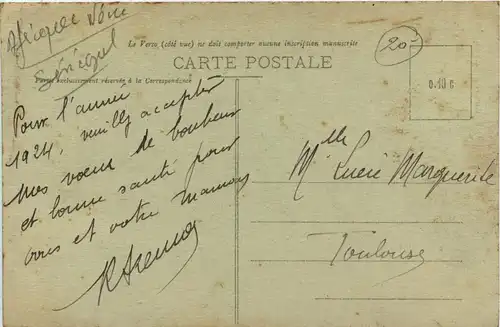 Afrique Noire
Sénégal
Le Verso (côté vue) ne doit comporter aucune inscription manuscrite
CARTE POSTALE
Partie exclusivement réservée à la Correspondance
20
0.10 c
Pour l'année
1924, veuillez accepter
mes vœux de bonheur
et bonne santé pour
vous et votre maman
Mlle Lucie Marguerite
Toulouse